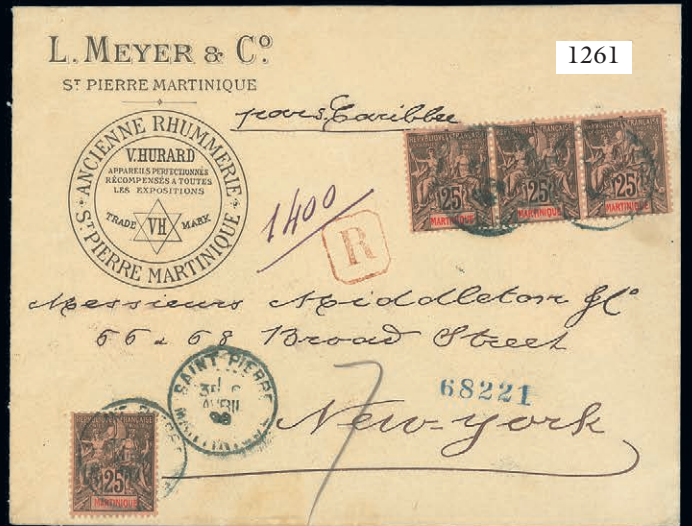 L. MEYER & Cº
ST PIERRE MARTINIQUE
1261
pr vars. Caribbee
ANCIENNE RHUMMERIE
V. HURARD
APPAREILS PERFECTIONNÉS
RÉCOMPENSÉS A TOUTES
LES EXPOSITIONS
TRADE VH MARK
ST PIERRE MARTINIQUE
REPUBLIQUE FRANÇAISE
25
MARTINIQUE
REPUBLIQUE FRANÇAISE
25
MARTINIQUE
REPUBLIQUE FRANÇAISE
25
MARTINIQUE
1400
R
Messieurs Middleton & Co
66 & 68 Broad Street
68221
New-York
7
SAINT PIERRE
AVRIL
MARTINIQUE
REPUBLIQUE FRANÇAISE
25
MARTINIQUE